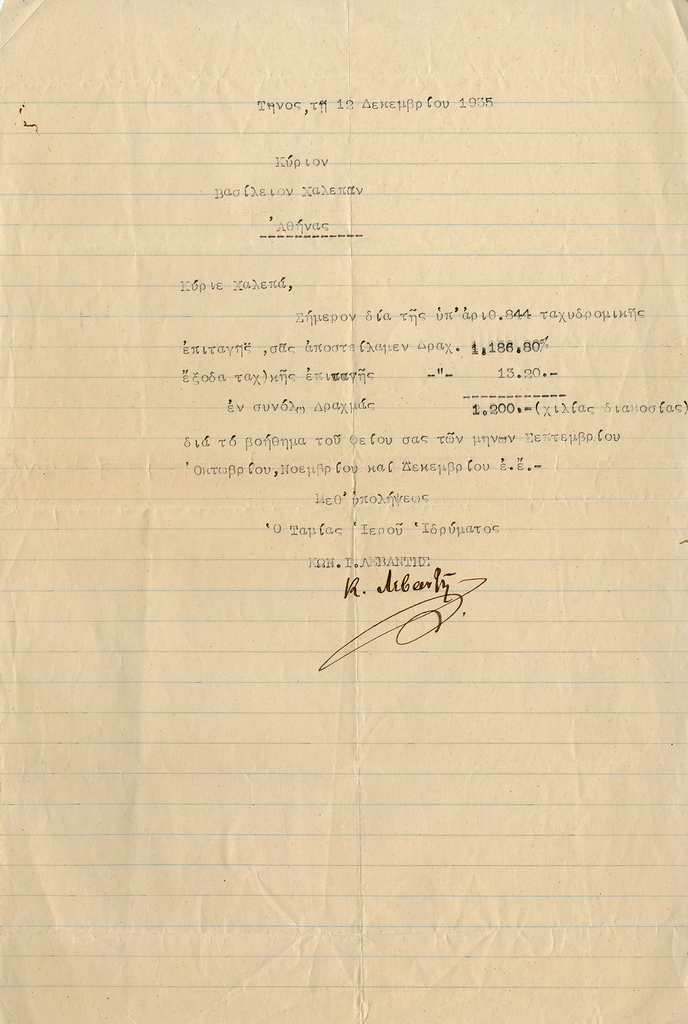 Τῆνος, τῇ 12 Δεκεμβρίου 1935
Κύριον
Βασίλειον Χαλεπᾶν
Ἀθήνας
Κύριε Χαλεπᾶ,
Σήμερον διά τῆς ὑπ' ἀριθ. 844 ταχυδρομικῆς
ἐπιταγῆς, σᾶς ἀποστείλαμεν Δραχ. 1,186,80%
ἔξοδα ταχ)κῆς ἐπιταγῆς -"- 13.20.-
ἐν συνόλῳ Δραχμάς 1,200.-(χιλίας διακοσίας)
διά τό βοήθημα τοῦ θείου σας τῶν μηνων Σεπτεμβρίου
Ὀκτωβρίου, Νοεμβρίου καί Δεκεμβρίου ἐ.ἔ.-
Μεθ' ὑπολήψεως
Ὁ Ταμίας Ἱεροῦ Ἱδρύματος
ΚΩΝ. Ι. ΛΕΒΑΝΤΗΣ
Κ. Λεβαντῆς